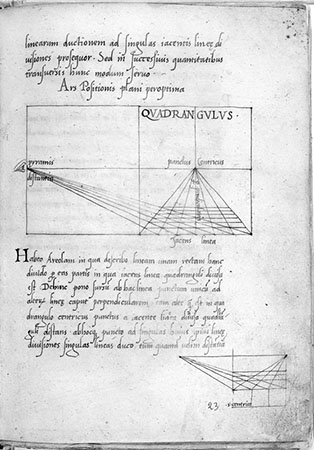 linearum ductionem ad singulas iacentis linee di
uisiones prosequor. Sed in successiuis quantitatibus
transuersis hunc modum seruo
Ars Positionis plani peroptima
QVADRANGVLVS.
piramis
distantie
punctus Centricus
Jacens linea
Habeo Areolam in qua describo lineam unam rectam hanc
diuido p eas partis in qua iacens linea quadranguli diuisa
est Dehinc pono sursu ab hac linea punctum unicu ad
alterum linee caput perpendicularem tam alte q est in qua
drangulo centricus punctus a iacente linea
distans abhocq puncto ad singulas huius
diuisiones singulas lineas duco tum quantu uelim distantia
23
centrico